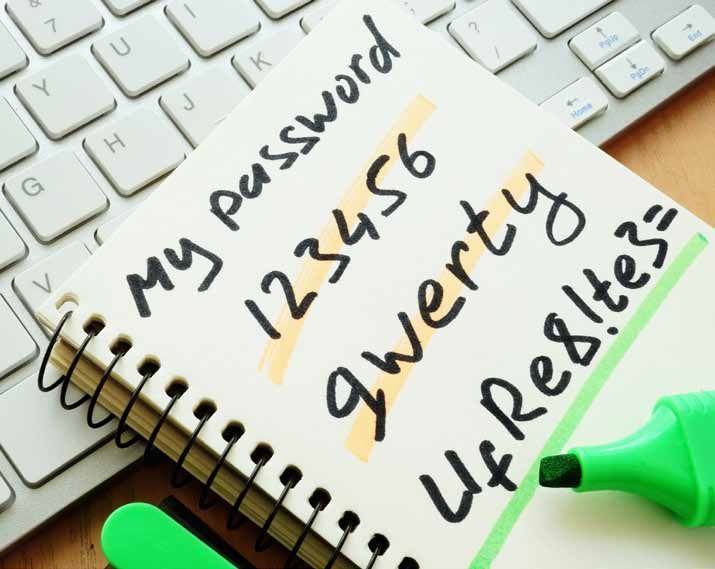 My password
123456
qwerty
UfRe8!te3=
&
7
U
I
Y
H
J
K
G
V
?
/
PgUp
PgDn
End
Home